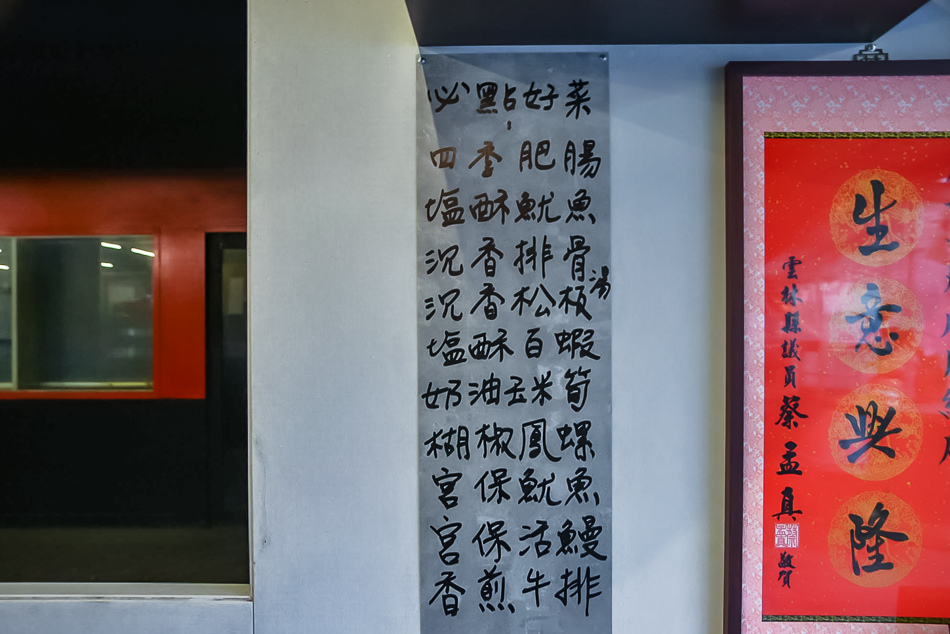 必點好菜
四季肥腸
塩酥魷魚
沉香排骨湯
沉香松板
塩酥百蝦
奶油玉米筍
糊椒鳳螺
宮保魷魚
宮保活鰻
香煎牛排
生意興隆
雲林縣議員蔡孟真
敬賀